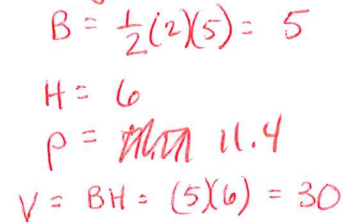 B = 1/2(2)(5) = 5
H = 6
P = 11.4
V = BH = (5)(6) = 30